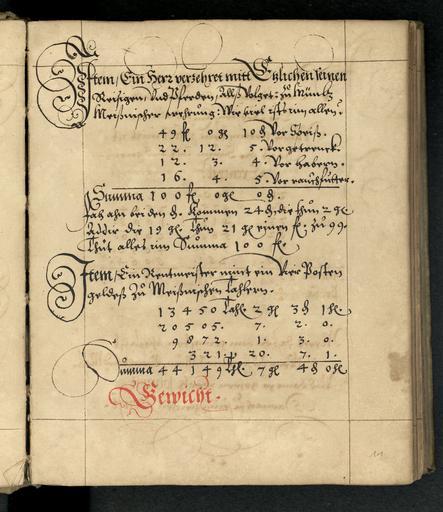 Item, Ein Herr verzehret mitt Etzlichen seinen
Reisigen, und Pferden, Alß Volget: zu Müntz
Meißnischer wehrung: Wie viel ists im allen?
49 fl 0 gl 10 ₰ Vor Speiß.
22. 12. 5. Vor getrenck.
12. 3. 4. Vor habern.
16. 4. 5. Vor rauchfutter.
Summa 100 fl 0 gl 0 ₰.
fah ahn bei den ₰. kommen 24 ₰, die thun 2 gl
Addir die 19 gl. thun 21 gl einen fl. zu 99.
thut alles im Summa 100 fl.
Item, Ein Rentmeister nimt ein Vier Posten
geldeß zu Meißnischen tahlern.
13450 tahl 2 gl 3 ₰ 1 hl.
20505. 7. 2. 0.
9872. 1. 3. 0.
321. 20. 7. 1.
Summa 44149 thl. 7 gl 4 ₰ 0 hl
Gewicht.